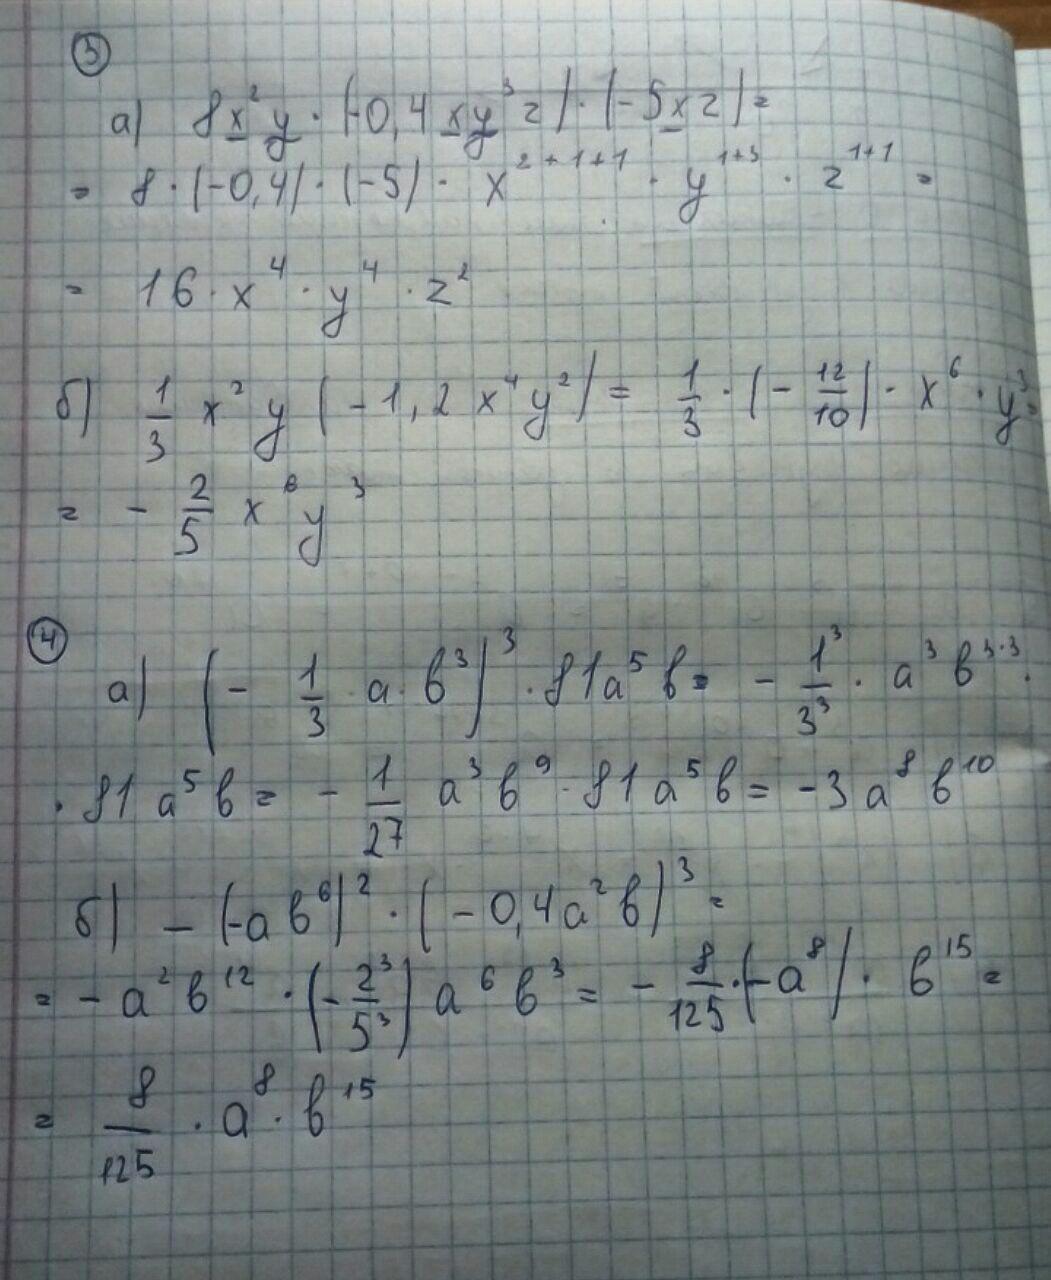 ③
а) 8x²y · (-0,4xy³z) · (-5xz) =
= 8 · (-0,4) · (-5) · x²⁺¹⁺¹ · y¹⁺³ · z¹⁺¹ =
= 16 · x⁴ · y⁴ · z²
б) 1/3 x²y (-1,2x⁴y²) = 1/3 · (- 12/10) · x⁶ · y³ =
= - 2/5 x⁶y³
④
а) (- 1/3 · a · b³)³ · 81a⁵b = - 1³/3³ · a³b³·³ ·
· 81a⁵b = - 1/27 a³b⁹ · 81a⁵b = -3a⁸b¹⁰
б) - (-ab⁶)² · (-0,4a²b)³ =
= - a²b¹² · (- 2³/5³) a⁶b³ = - 8/125 · (-a⁸) · b¹⁵ =
= 8/125 · a⁸ · b¹⁵